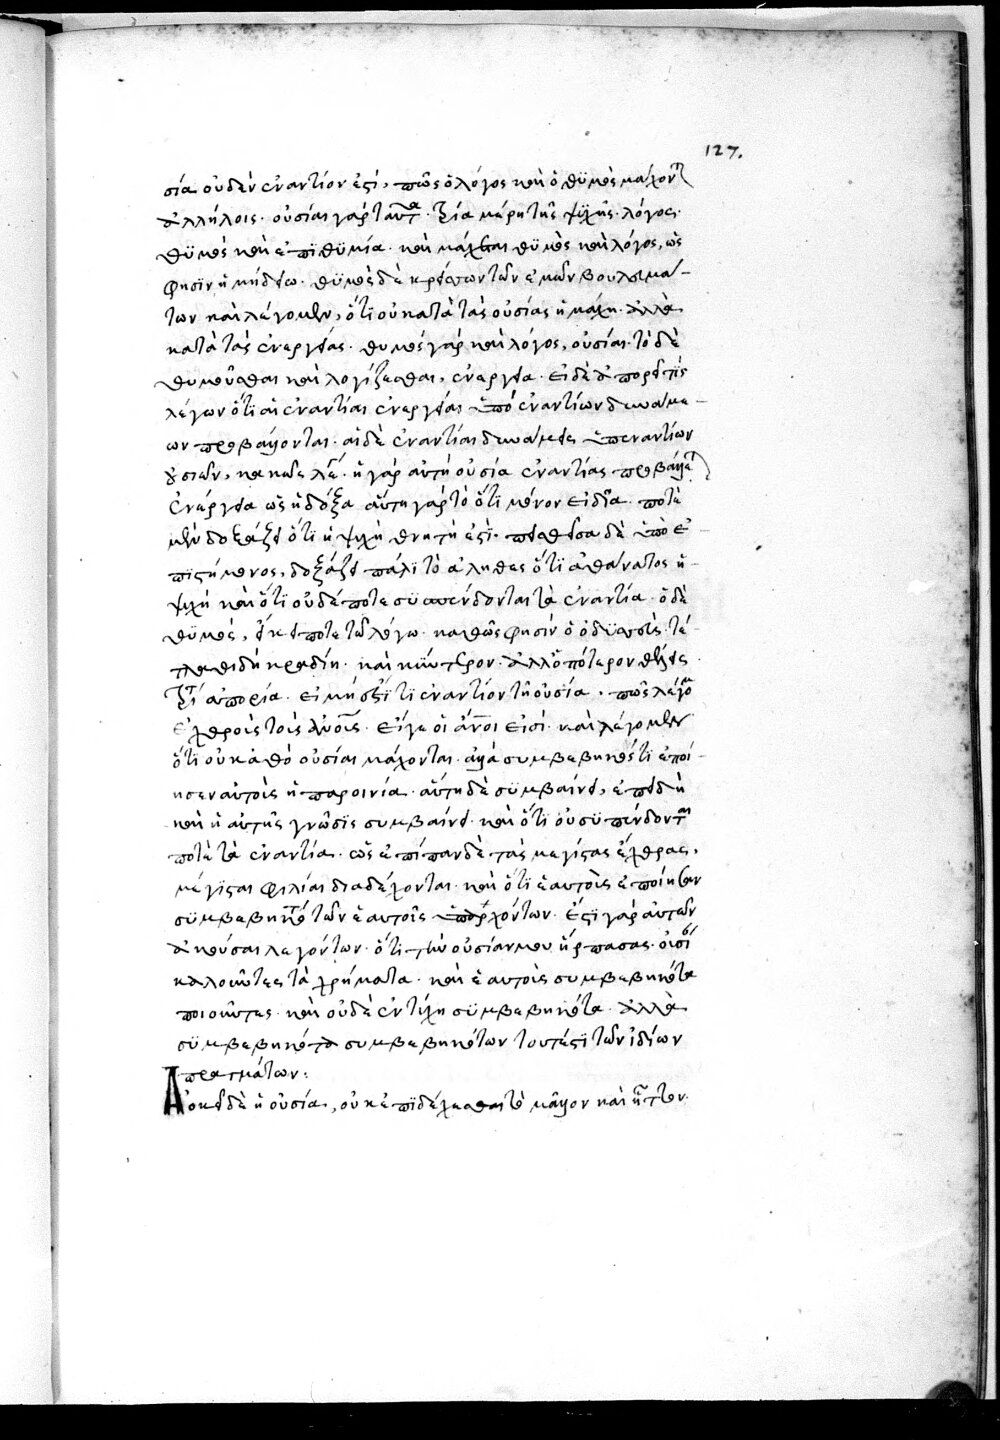 127.
σία οὐδὲν ἐναντίον ἐστί, πῶς ὁ λόγος καὶ ὁ θυμὸς μάχονται
ἀλλήλοις. οὐσίαι γὰρ ταῦτα. τρία μέρη τῆς ψυχῆς. λόγος.
θυμὸς καὶ ἐπιθυμία. καὶ μάχεται θυμὸς καὶ λόγος, ὡς
φησὶν ἡ μήδεια. θυμὸς δὲ κρείσσων τῶν ἐμῶν βουλευμά-
των καὶ λέγομεν, ὅτι οὐ κατὰ τὰς οὐσίας ἡ μάχη. ἀλλὰ
κατὰ τὰς ἐνεργείας. θυμὸς γὰρ καὶ λόγος, οὐσίαι. τὸ δὲ
θυμοῦσθαι καὶ λογίζεσθαι, ἐνέργεια. εἰ δὲ ἀπορεῖ τις
λέγων ὅτι αἱ ἐναντίαι ἐνέργειαι ὑπὸ ἐναντίων δυνάμε-
ων προβάλλονται. αἱ δὲ ἐναντίαι δυνάμεις ὑπ' ἐναντίων
οὐσιῶν, κακῶς λέγει. ἡ γὰρ αὐτὴ οὐσία ἐναντίας προβάλλεται
ἐνέργεια ὡς ἡ δόξα αὕτη γὰρ τὸ ὅτι μόνον εἰδυῖα. ποτὲ
μὲν δοξάζει ὅτι ἡ ψυχὴ θνητή ἐστι. πεισθεῖσα δὲ ὑπὸ ἐ-
πιστήμονος, δοξάζει πάλι τὸ ἀληθὲς ὅτι ἀθάνατος ἡ
ψυχὴ καὶ ὅτι οὐδέποτε συσπένδονται τὰ ἐναντία. ὁ δὲ
θυμὸς, εἴκει ποτε τῷ λόγῳ. καθώς φησιν ὁ ὀδυσσεύς. τέ-
τλαθι δὴ κραδίη. καὶ κύντερον. ἄλλο πότερον ἔτλης
τρίτη ἀπορία. εἰ μή ἐστί τι ἐναντίον τῇ οὐσίᾳ, πῶς λέγομεν
ἐχθροὺς τοὺς ἀνθρώπους. εἴγε οἱ ἄνθρωποι εἰσί. καὶ λέγομεν
ὅτι οὐ καθὸ οὐσίαι μάχονται. ἀλλὰ συμβεβηκός τι ἐποί-
ησεν αὐτοῖς ἡ παροινία. αὕτη δὲ συμβαίνει, ἐπειδὴ
καὶ ἡ αὐτῆς γνῶσις συμβαίνει. καὶ ὅτι οὐ συσπένδονται
ποτὲ τὰ ἐναντία. ὡς ἐπίπαν δὲ τὰς μεγίστας ἔχθρας,
μέγισται φιλίαι διαδέχονται. καὶ ὅτι ἑαυτοὺς ἐποίησαν
συμβεβηκότα τῶν ἑαυτοῖς ὑπαρχόντων. ἔστι γὰρ αὐτῶν
ἀκοῦσαι λεγόντων. ὅτι τὴν οὐσίαν μου ἥρπασας. οὐσίαν
καλοῦντες τὰ χρήματα. καὶ ἑαυτοὺς συμβεβηκότα
ποιοῦντες. καὶ οὐδὲ ἐν τύχῃ συμβεβηκότα. ἀλλὰ
συμβεβηκότα συμβεβηκότων τουτέστι τῶν ἰδίων
πραγμάτων:
Δοκεῖ δὲ ἡ οὐσία, οὐκ ἐπιδέχεσθαι τὸ μᾶλλον καὶ ἧττον.